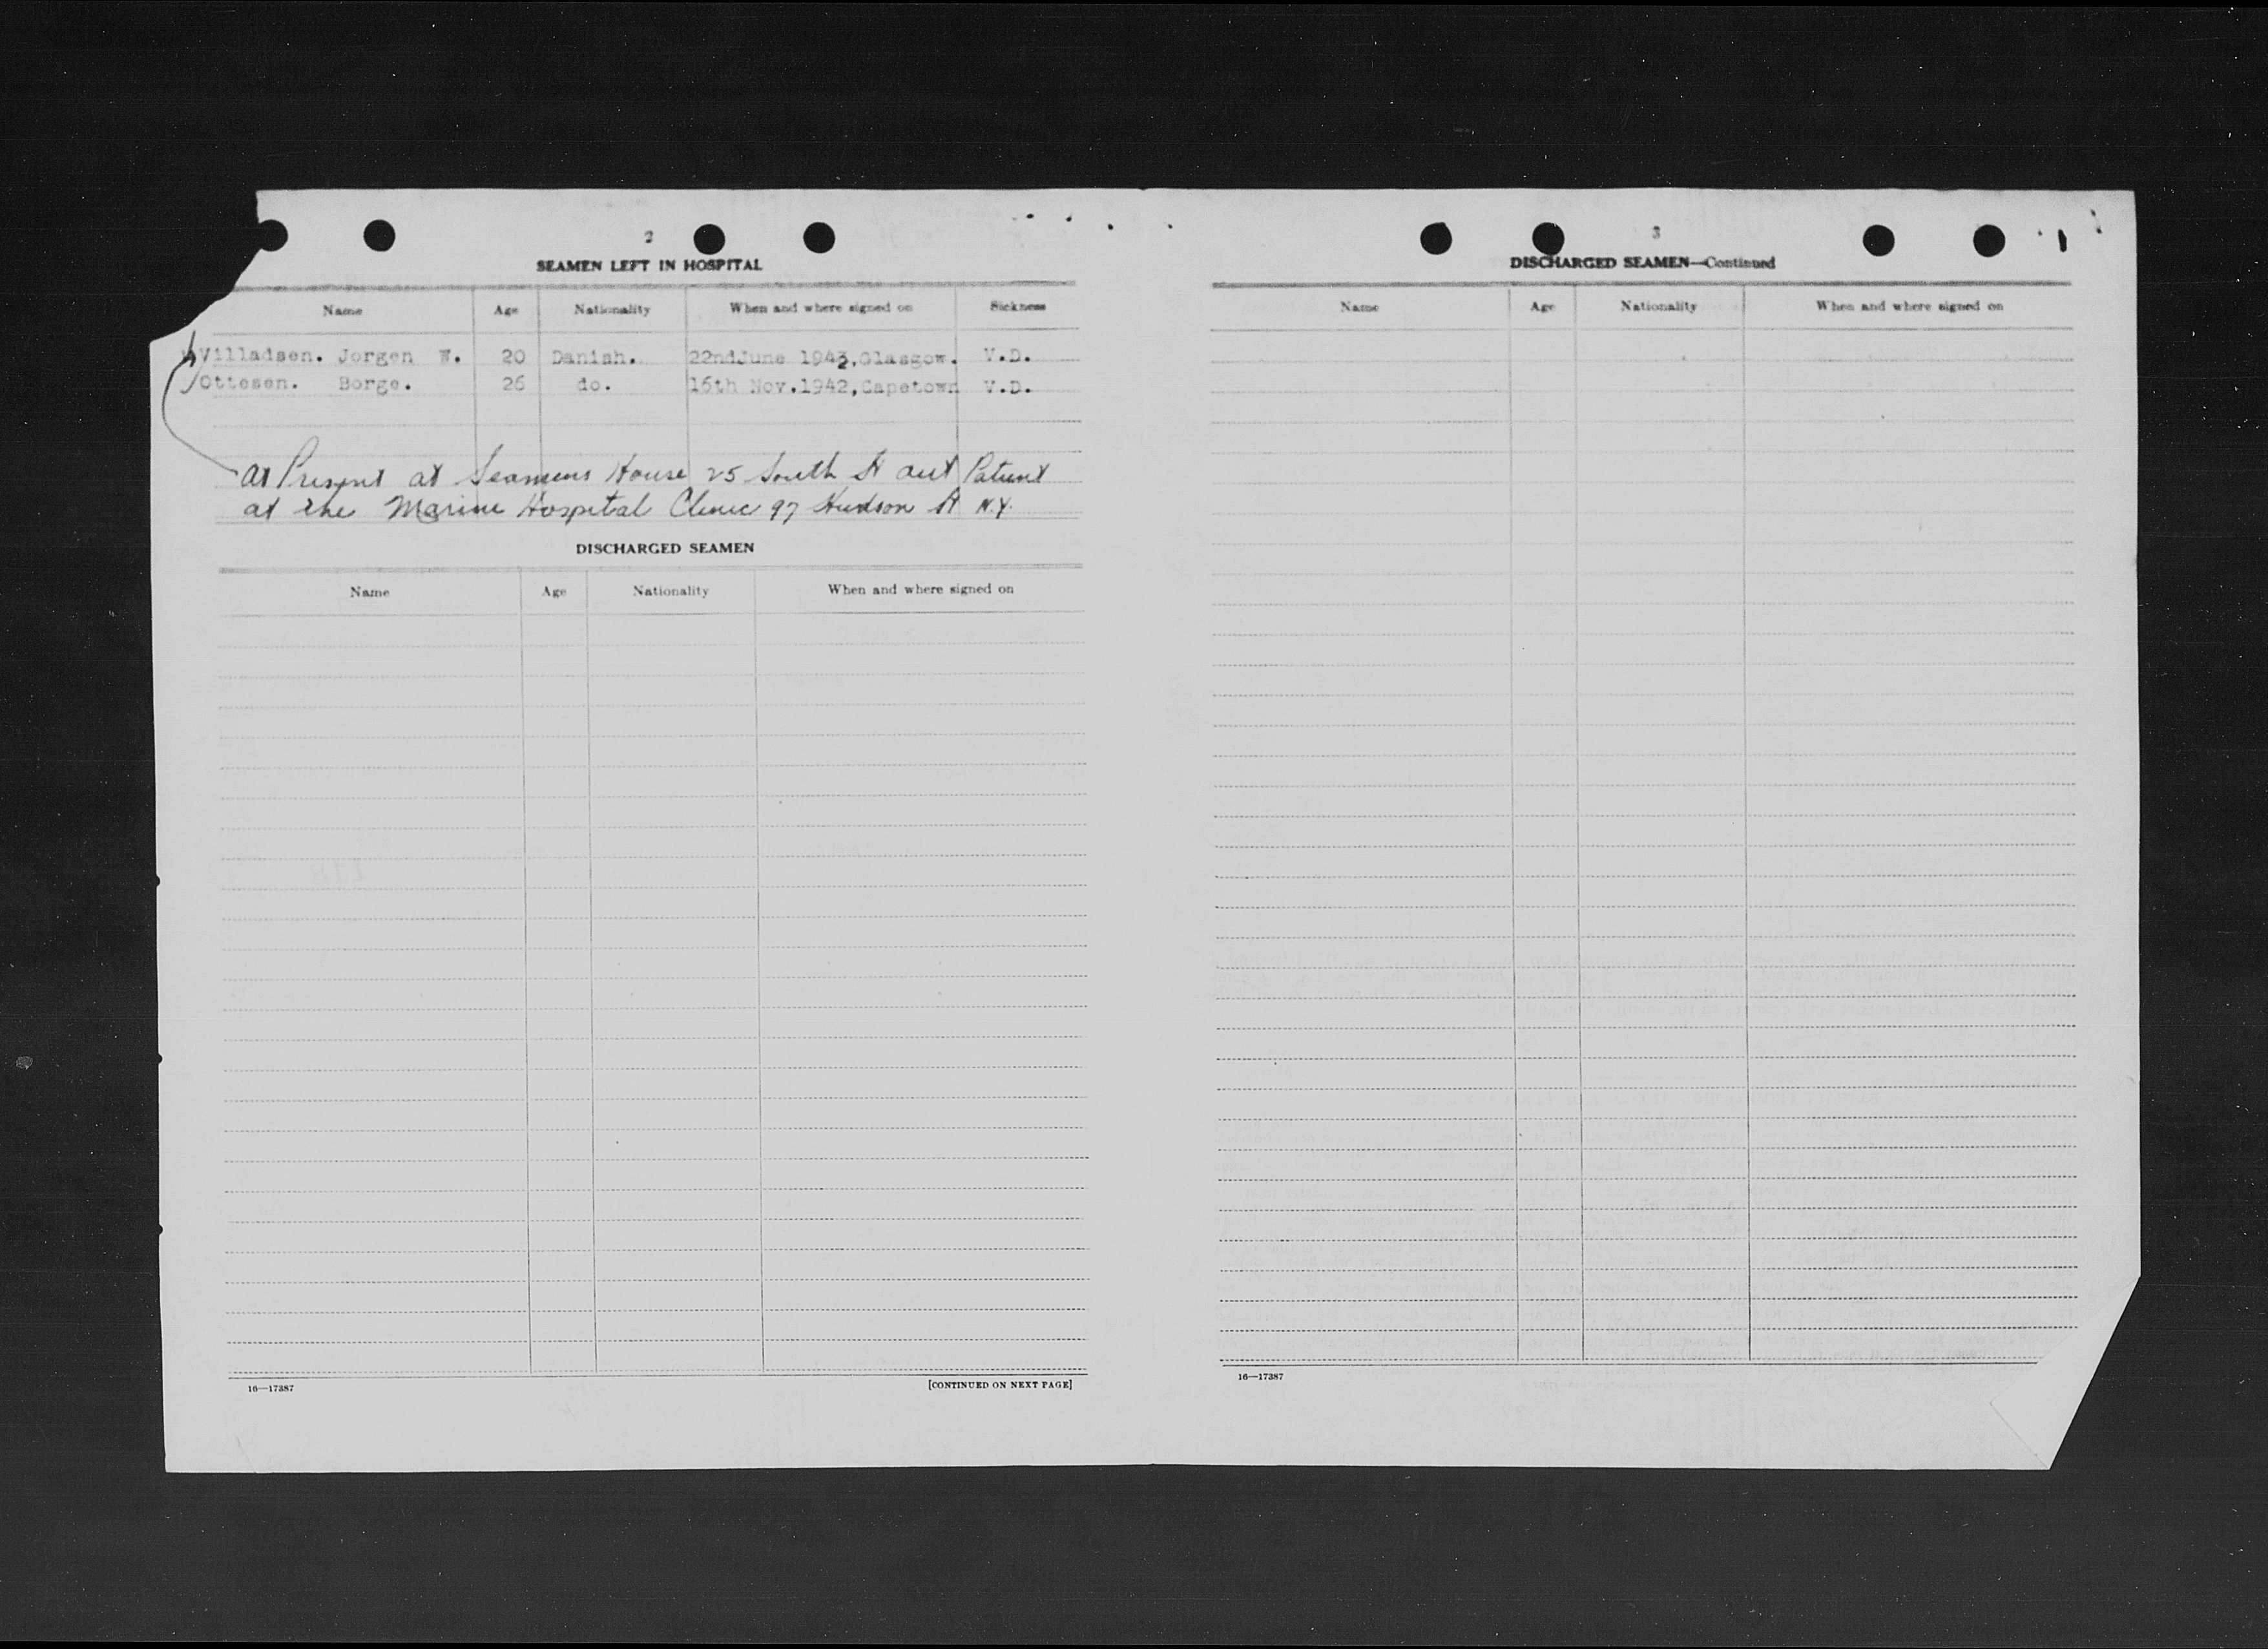 2
SEAMEN LEFT IN HOSPITAL
Name Age Nationality When and where signed on Sickness
Villadsen. Jorgen W. 20 Danish. 22ndJune 1942,Glasgow. V.D.
Ottesen. Borge. 26 do. 16th Nov.1942,Capetown V.D.
at Present at Seamens House 25 South St out Patient
at the Marine Hospital Clinic 97 Hudson St N.Y.
DISCHARGED SEAMEN
Name Age Nationality When and where signed on
16—17387 [CONTINUED ON NEXT PAGE]
3
DISCHARGED SEAMEN—Continued
Name Age Nationality When and where signed on
16—17387